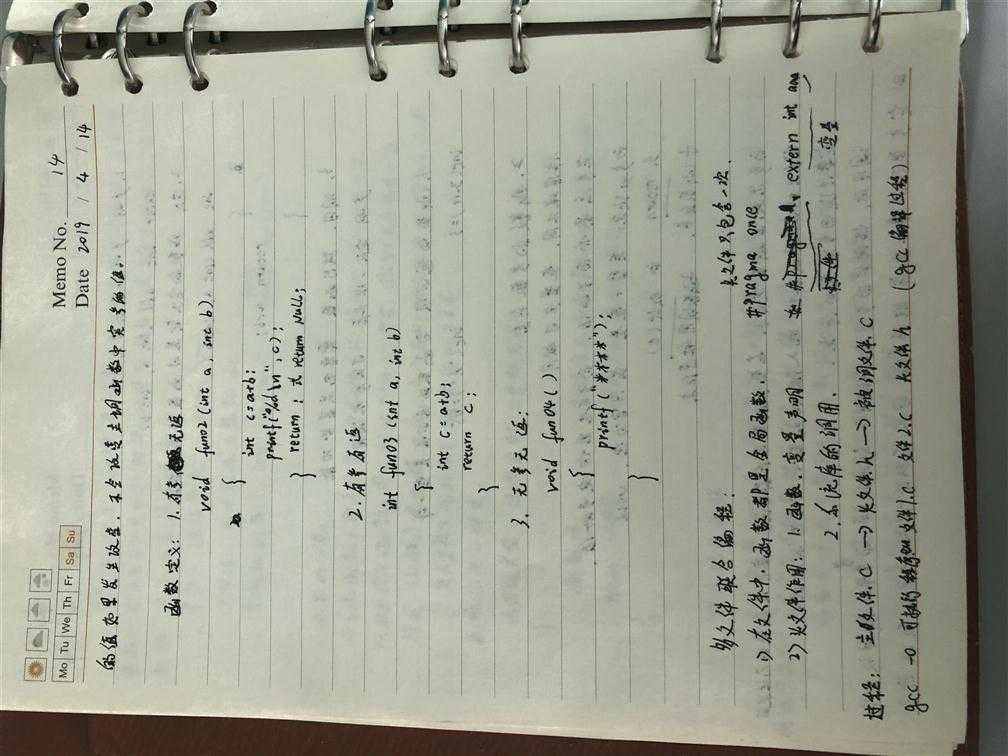 Memo No. 14
Mo Tu We Th Fr Sa Su
Date 2019 / 4 / 14
的值如果发生改变，不会改变主调函数中实参的值。
函数定义：1. 有参无返
void fun02(int a, int b)
{
int c=a+b;
printf("%d\n", c);
return ; 或 return Null;
}
2. 有参有返
int fun03 (int a, int b)
{
int c = a+b;
return c;
}
3. 无参无返：
void fun04()
{
printf("****");
}
多文件联合编程： 头文件只包含一次.
1) 在文件中，函数都是全局函数. #pragma once
2) 头文件作用：1. 函数、变量声明 extern int
2. 系统库的调用. 变量
过程：主文件.C → 头文件.h → 被调文件.C
gcc -o 可执行程序 文件1.C 文件2.C 头文件.h (gcc 编译过程)